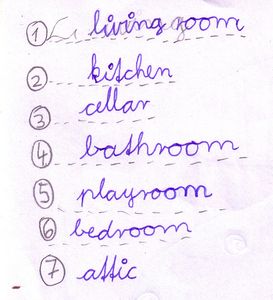 1 living room
2 kitchen
3 cellar
4 bathroom
5 playroom
6 bedroom
7 attic